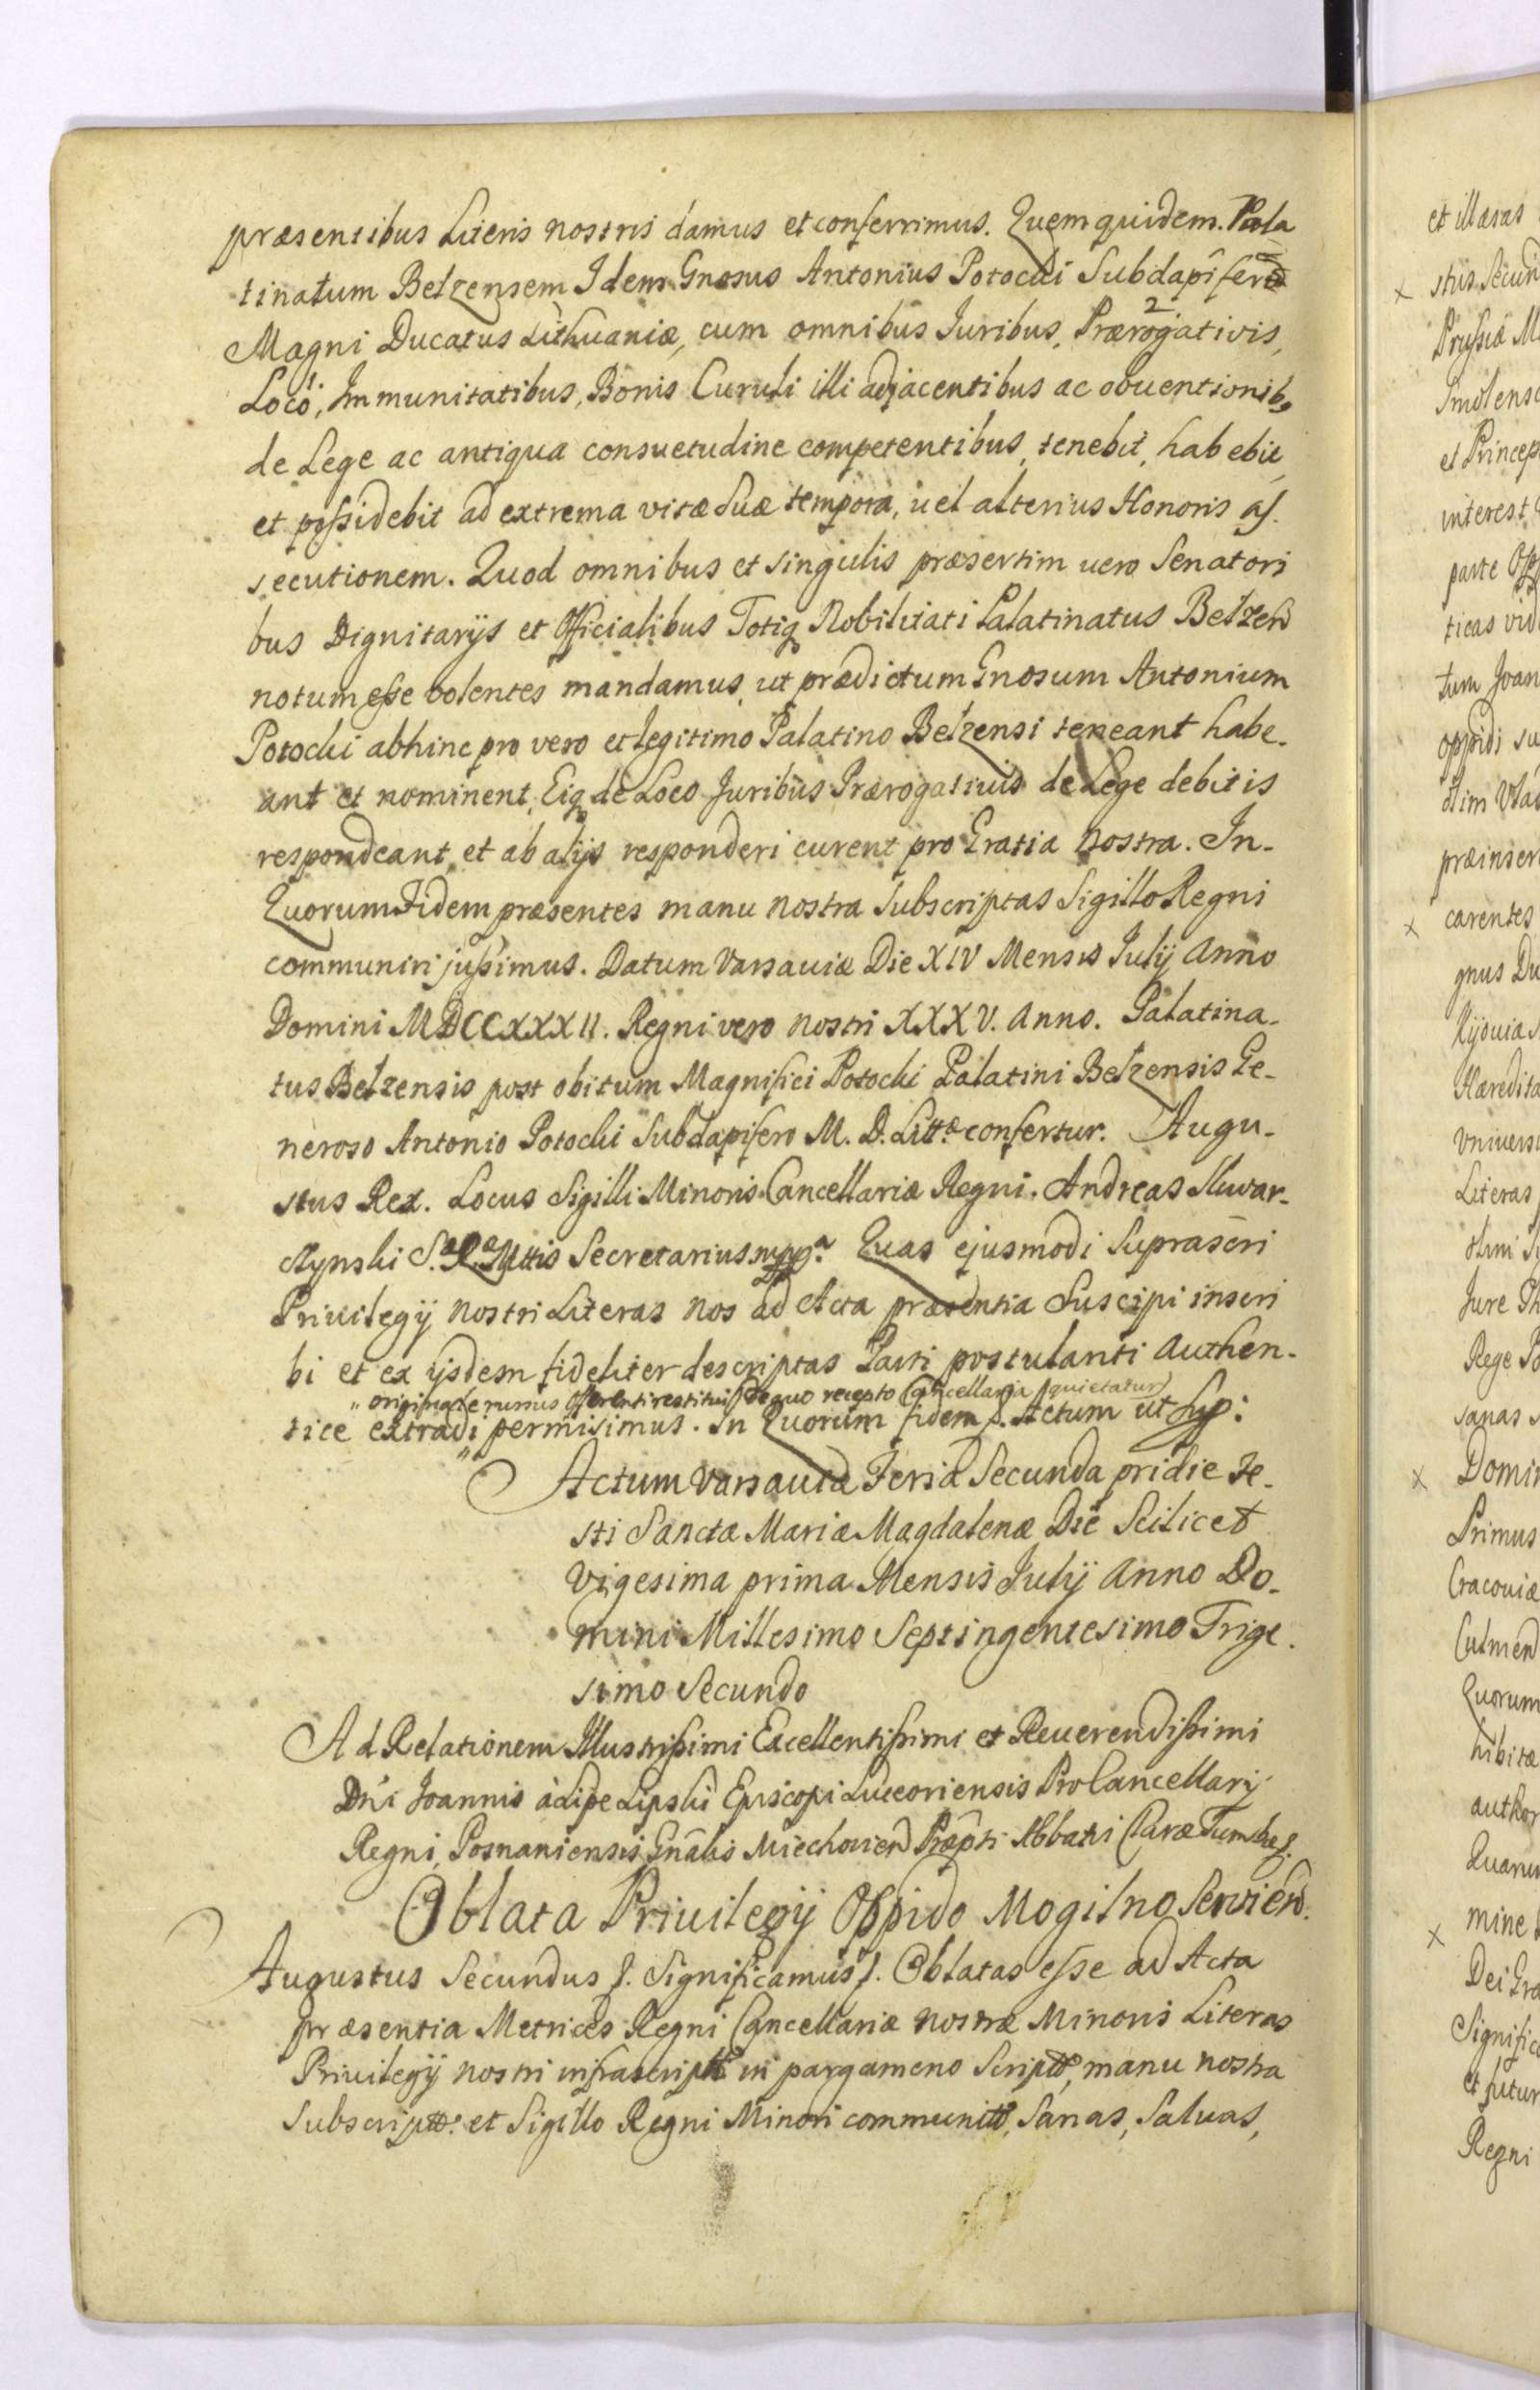 præsentibus Literis nostris damus et conferrimus. Quem quidem. Pala
tinatum Belzensem Idem Gnosus Antonius Potocki Subdapifer
Magni Ducatus Lithuaniæ, cum omnibus Iuribus, Prærogativis, 2
Loco, 1 Immunitatibus, Bonis Curuli illi adjacentibus ac obuentionibq
de Lege ac antiqua consuetudine competentibus, tenebit, habebit,
et possidebit ad extrema vitæ suæ tempora, uel alterius Honoris as.
secutionem. Quod omnibus et singulis præsertim uero Senatori
bus Dignitarijs et Officialibus Totiq Nobilitati Palatinatus Belzen
notum esse volentes mandamus, ut prædictum Gnosum Antonium
Potocki abhinc pro vero et legitimo Palatino Belzensi teneant habe-
ant et nominent, Eiq de Loco Juribus Prærogatiuis de Lege debitis
respondeant, et ab alijs responderi curent pro Gratia nostra. In-
Quorum Fidem præsentes manu nostra subscriptas Sigillo Regni
communiri jussimus. Datum Varsauiæ Die XIV Mensis Julij Anno
Domini MDCCXXXII. Regni vero nostri XXXV. Anno. Palatina-
tus Belzensis post obitum Magnifici Potocki Palatini Belzensis Ge-
neroso Antonio Potocki Subdapifero M. D. Littæ confertur. Augu-
stus Rex. Locus Sigilli Minoris Cancellariæ Regni. Andreas
S. R. Mttis Secretarius mppa Quas ejusmodi Suprascri
Priuilegij nostri Literas nos ad Acta præsentia Suscipi inscri
bi et ex ijsdem fideliter descriptas Parti postulanti Authen-
" originale rursus Offerenti restitui (de quo recepto Cancellaria quietatur)
tice extradi " permisimus. In Quorum fidem f. Actum ut Sup:
Actum Varsauiæ Feria Secunda pridie Fe-
sti Sanctæ Mariæ Magdalenæ Die Scilicet
Vigesima prima Mensis Julij Anno Do-
mini Millesimo Septingentesimo Trige.
simo Secundo
Ad Relationem Illustrissimi Excellentissimi et Reuerendissimi
Dni Joannis à Lipe Lipski Episcopi Luceoriensis ProCancellarij
Regni, Posnaniensis, Gnalis Miechovien Præpti Abbatis Claræ Tumbæ f.
Oblata Priuilegij Oppido Mogilno Servien.
Augustus Secundus f. Significamus f. Oblatas esse ad Acta
præsentia Metrices Regni Cancellariæ nostræ Minoris Literas
Priuilegij nostri infrascripti in pargameno Scriptt, manu nostra
subscriptt. et Sigillo Regni Minori communitt, Sanas, Saluas,
et illæsas
× stus Secun
Prussiæ M
Smolensc
et Princep
interest
parte Opp
ticas vid
tum Joan
oppidi su
olim Vla
præinser
× carentes
gnus Du
Kijouiæ
Hæredita
Vniuers
Literas
olim
Jure Th
Rege Po
sanas s
× Domin
Primus
Cracouiæ
Culmen
Quorum
hibitæ
author
Quarum
× mine
Dei Gra
Signific
et futur
Regni